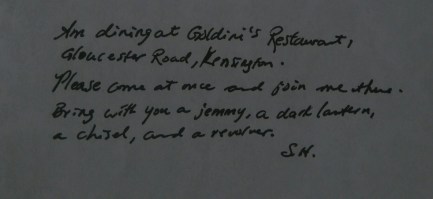 Am dining at Goldini's Restaurant,
Gloucester Road, Kensington.
Please come at once and join me there.
Bring with you a jemmy, a dark lantern,
a chisel, and a revolver.
S.H.